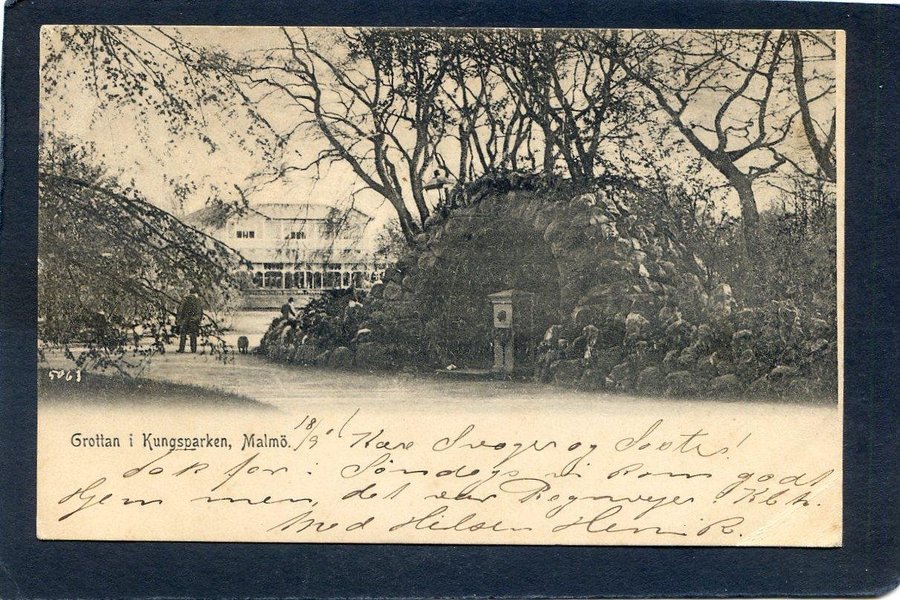 5063
Grottan i Kungsparken, Malmö.
18/9 Kære Svoger og Søster!
Tak for i Søndags vi kom godt
Hjem men det var Regnvejr i Kbh.
Med Hilsen Henrik R.